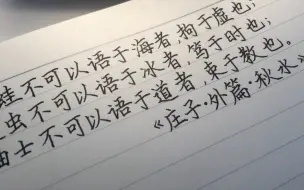 蛙不可以语于海者,拘于虚也;
虫不可以语于冰者,笃于时也;
士不可以语于道者,束于教也。
《庄子·外篇·秋水》